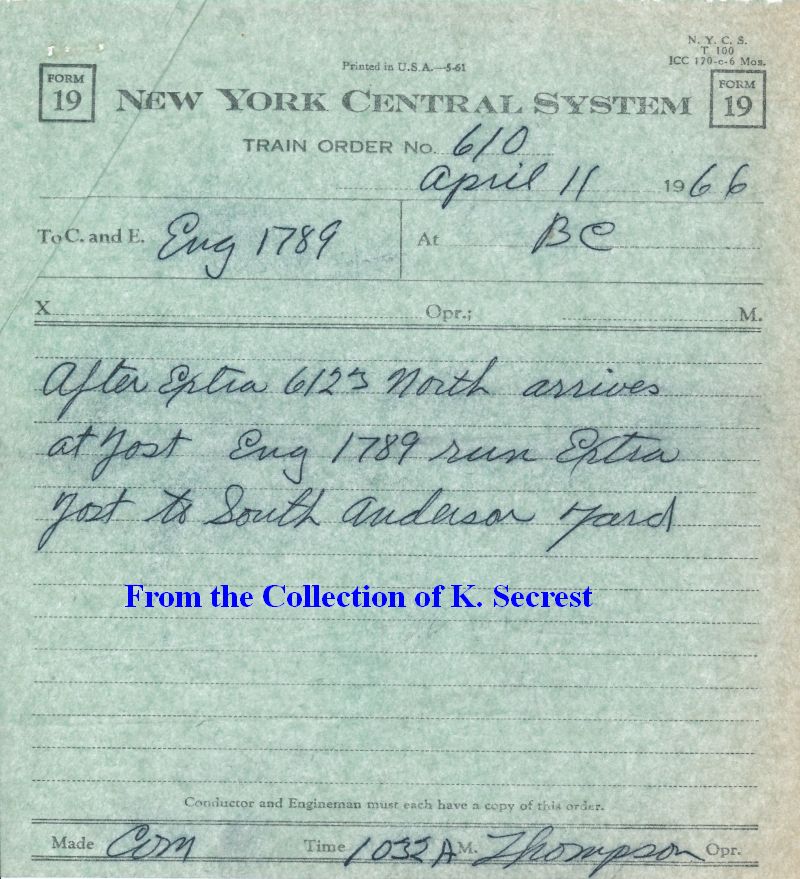 N. Y. C. S.
T 100
ICC 170-c-6 Mos.
Printed in U.S.A.—5-61
FORM 19 NEW YORK CENTRAL SYSTEM FORM 19
TRAIN ORDER No. 610
April 11 1966
To C. and E. Eng 1789 At BC
X Opr.; M.
After Extra 6123 North arrives
at Yost Eng 1789 run Extra
Yost to South Anderson Yard
From the Collection of K. Secrest
Conductor and Engineman must each have a copy of this order.
Made Com Time 1032 A M. Thompson Opr.